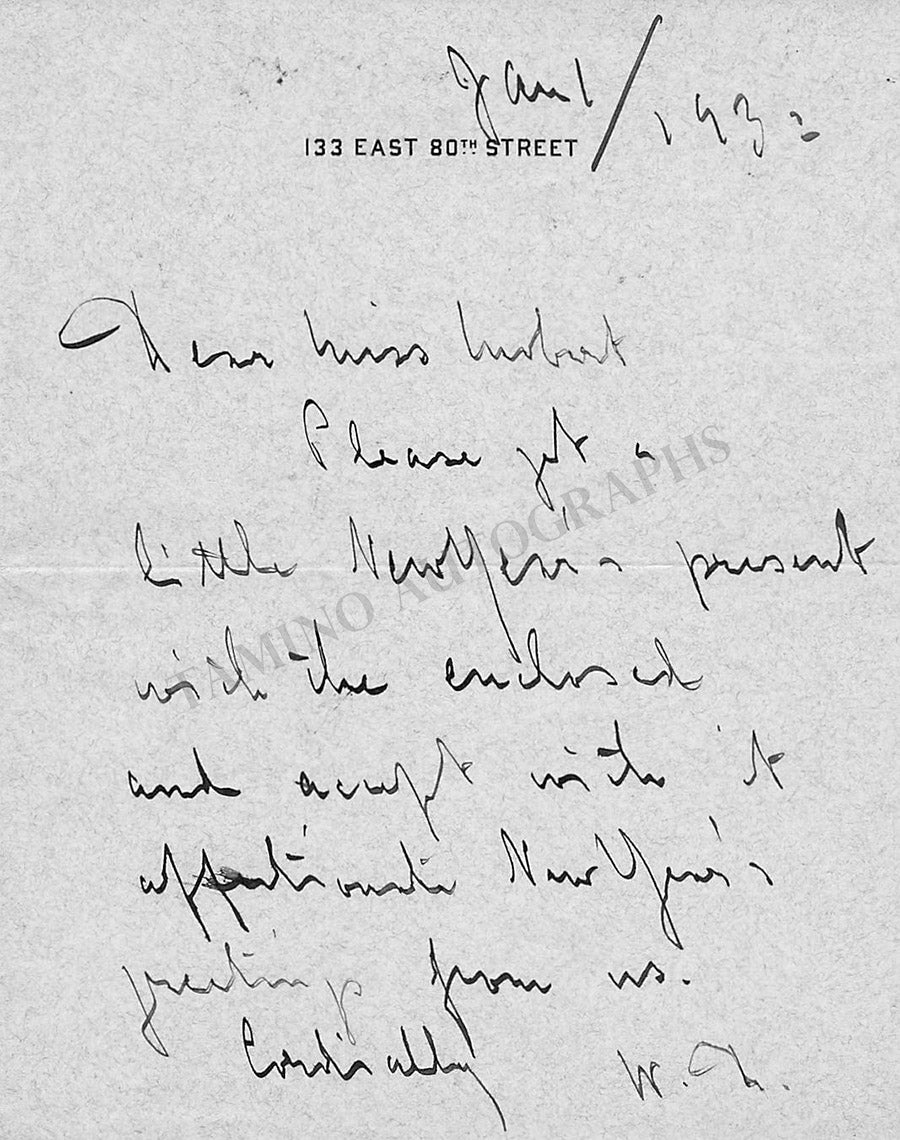 Jan 1/1932
133 EAST 80TH STREET
Dear Miss
Please get a
little New Year's present
with the enclosed
and accept with it
affectionate New Year's
greetings from us.
Cordially W. D.
TAMINO AUTOGRAPHS